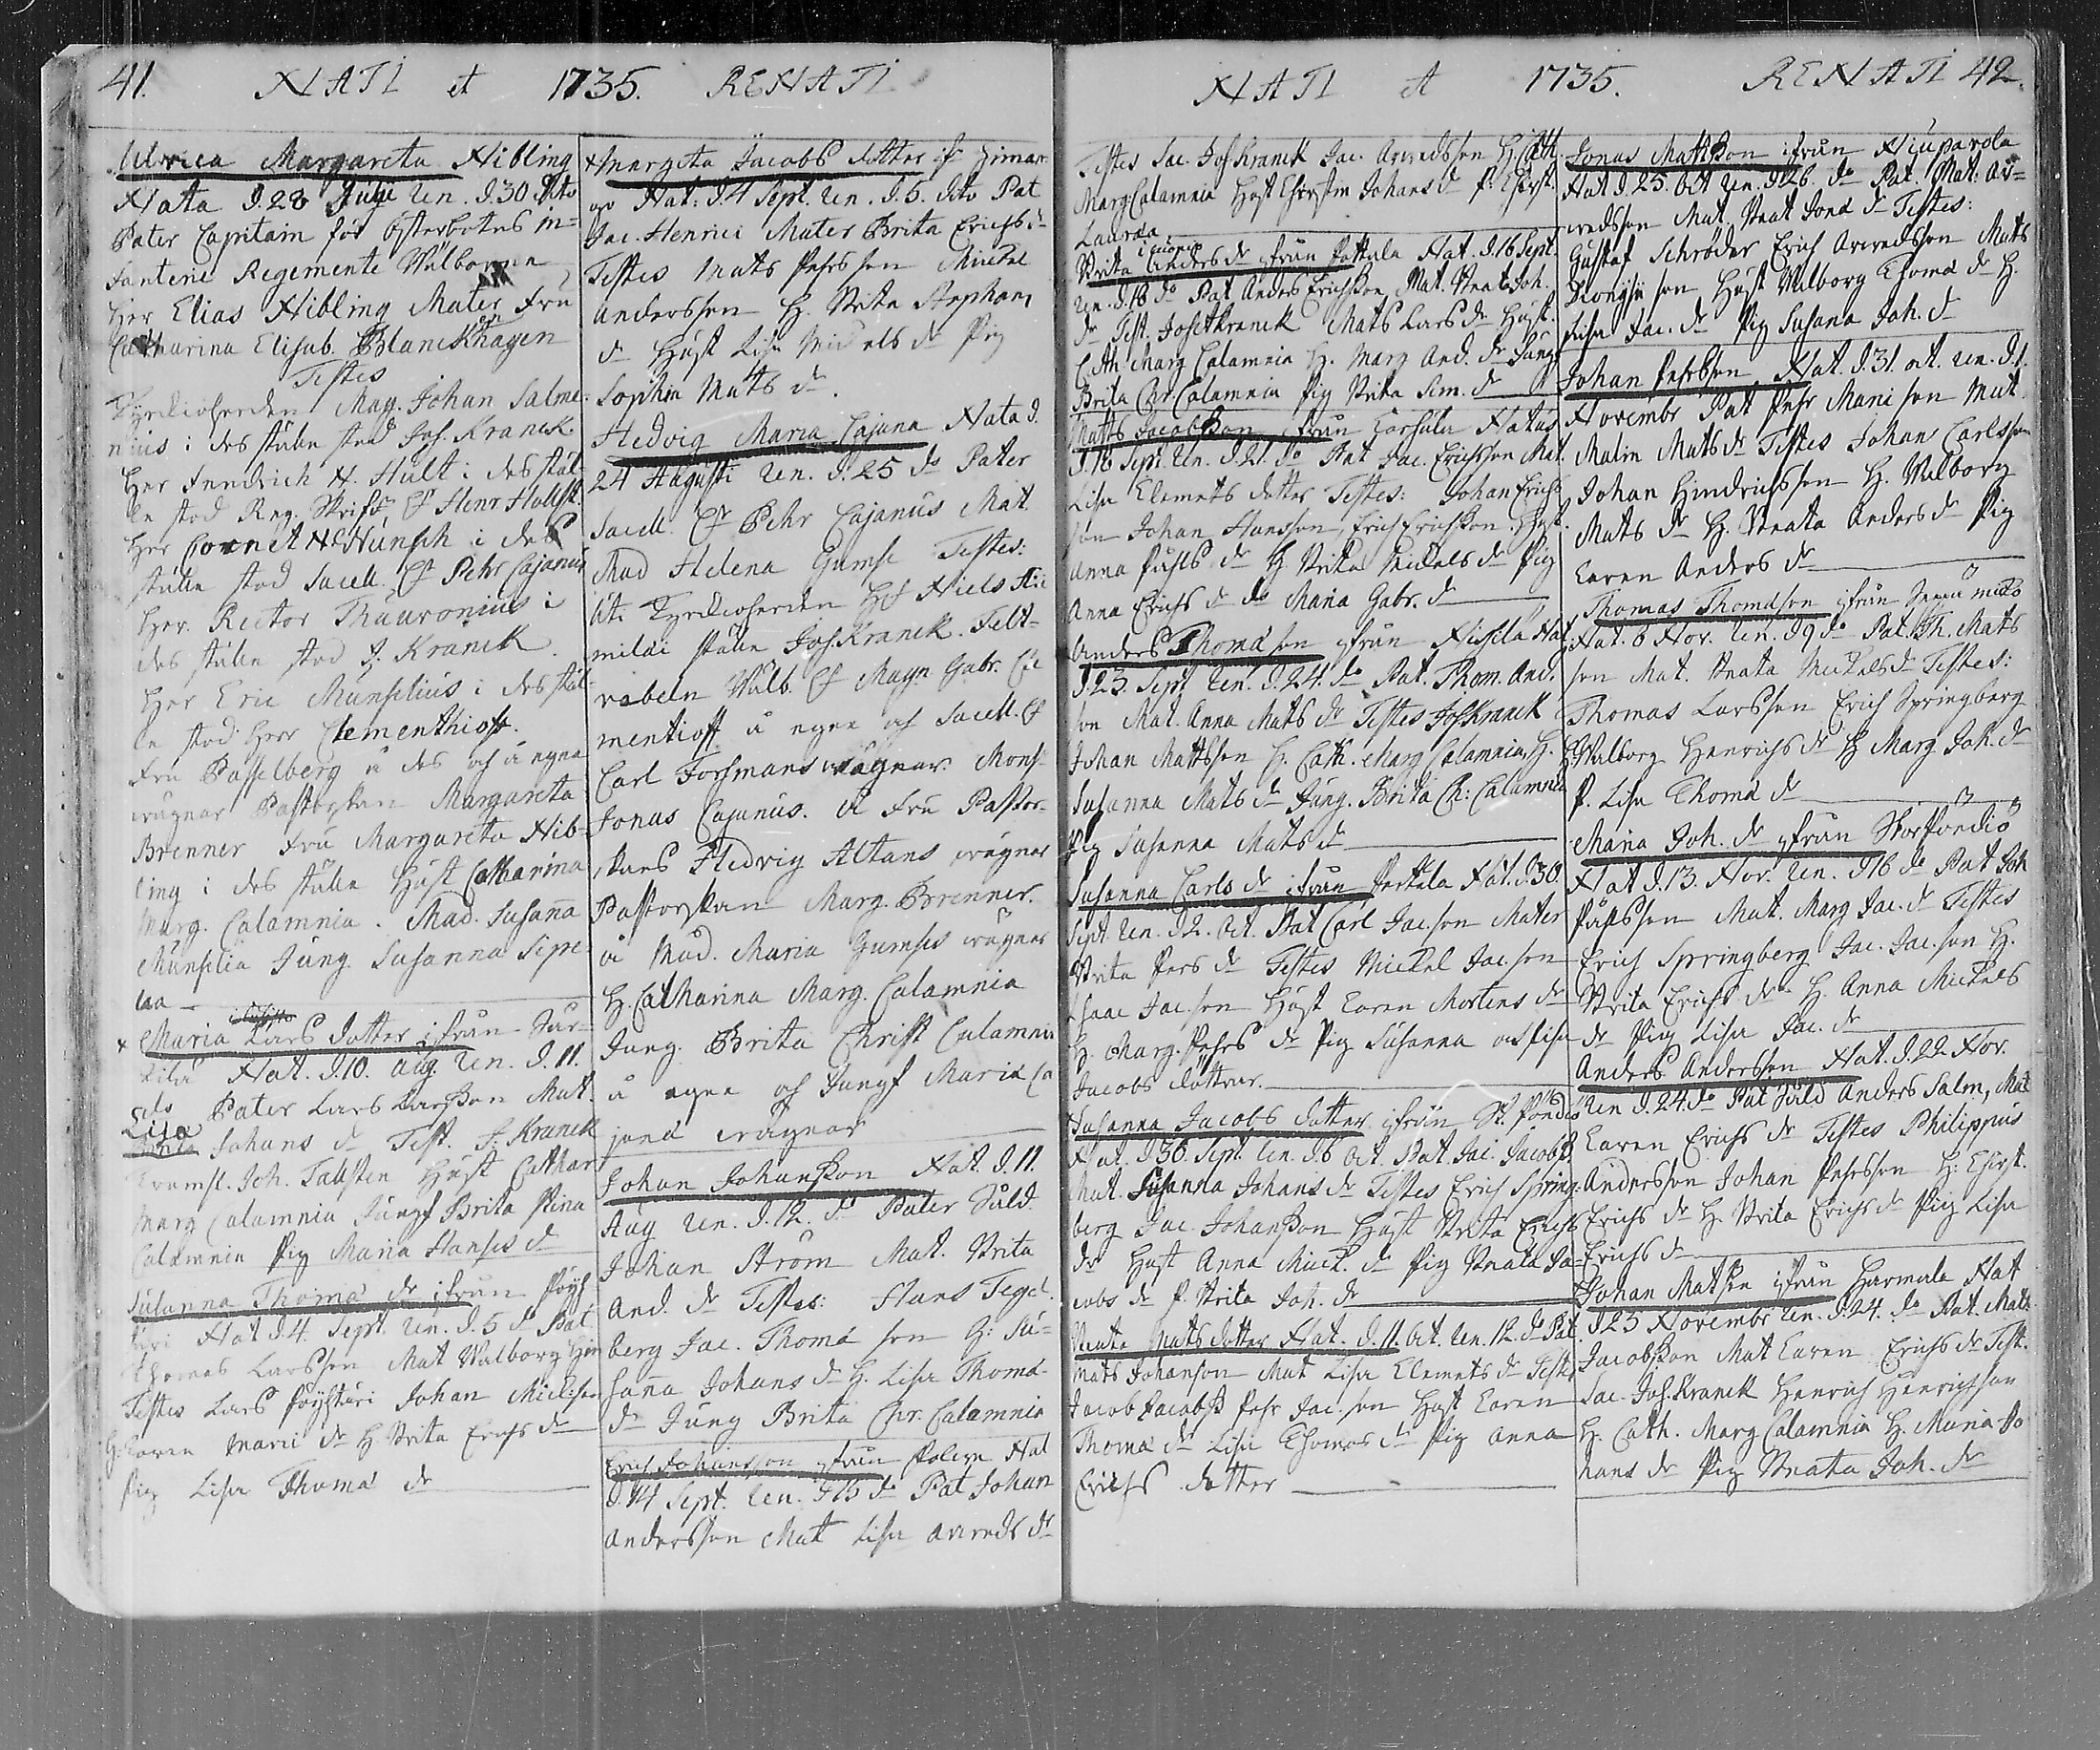 41. NATI et 1735. RENATI
Ulrica Margareta Nibling
Nata d. 28 Ren. d. 30 dito
Pater Capitain för österbotns in-
fanterie Regemente Wälborne
Her Elias Nibling Mater Fru
Catharina Elisab. Blanckhagen
Testes
Kyrckioherden Mag. Johan Salme-
nius i des ställe stod Jos. Kranck
Her Fredrich N. Hult i des stäl-
le stod Reg. Skrif. Hr Henr Holfst.
Her Cornet Hünsch i des
ställe stod Sacell. Hr Pehr Cajanus
Her. Rector Thauvonius i
des ställe stod J. Kranck.
Her Eric Munselius i des stäl-
le stod herr Clementhioff.
Fru Passelberg å des och å egna
wägnar Pastorskan Margareta
Brenner Fru Margareta Nib-
ling i des ställe Hust Catharina
Marg. Calamnia. Mad. Susana
Munselia Jung. Susanna Sipe-
laa
Maria Lars dotter ifrån Sär-
kilä Nat. d. 10. aug. Ren. d. 11.
do Pater Lars Larsson Mat.
Lisa Johans dr Test. J. Kranck
Trumsl. Joh. Tallsten Hust Cathar
Marg Calamnia Jungf Brita Stina
Calamnia Pig Maria Hanses dr
Susanna Thoma dr ifrån Pöys
täri Nat d. 4. Sept. Ren. d. 5 do Pat
Thomas Larsson Mat Walborg Hin
Testes Lars Pöystäri Johan Mickson
H. Karin Marci dr H. Brita Erichs dr
Pig Lisa Thoma dr
Margeta Jacobs dotter if Himan
go Nat: d. 4 Sept. Ren. d. 5. dito Pat
Jac. Henrici Mater Brita Erichs dr
Testes Mats Pehrsson Mickel
Andersson H. Brita Stephans
dr Hust Lisa Mickels dr Pig
Sophia Mats dr.
Hedvig Maria Cajana Nata d.
24 Augusti Ren. d. 25 do Pater
Sacell. Hr Pehr Cajanus Mat.
Mad Helena Gumse Testes:
Kyrckioherden Hr Niels
ställe Jos. Kranck. Felt-
wäbeln Wälb. Hr Magn Gabr. Cle
mentioff å egna och Sacell. Hr
Carl Forsmans wägnar. Mons.
Jonas Cajanus. å Fru Pastor-
skans Hedvig Altans wägnar
Pastorskan Marg. Brenner.
å Mad. Maria Gumses wägnar
H. Catharina Marg. Calamnia
Jung. Brita Christ Calamnia
å egna och Jungf Maria Ca
jana wägnar
Johan Johansson Nat. d. 11.
Aug Ren. d. 12. do Pater Såld.
Johan Ström Mat. Brita
And. dr Testes: Hans Tegel-
berg Jac. Thoma son H: Su-
sana Johans dr H. Lisa Thoma
dr Jung Brita Chr. Calamnia
Erich Johansson ifrån Palixn Nat
d. 14 Sept. Ren. d 15 do Pat Johan
Andersson Mat Lisa Arveds dr
NATI et 1735. RENATI 42.
Testes Sac. Jos. Kranck Jac. Arvedsson H. Cath.
Marg. Calamnia Hust Christin Johans dr P. Christ.
Laurea
Brita Anders dr ifrån Pattala Nat. d. 16 Sept.
Ren. d. 18 do Pat Anders Erichsson Mat. Beata Joh.
dr Test. Jos. Kranck Mats Lars dr Hust.
Cath Marg Calamnia H. Marg And. dr Jung
Brita Chr. Calamnia Pig Brita Sim. dr
Matts Jacobsson ifrån Karhula Natus
d. 16 Sept. Ren. d. 21. do Pat Jac. Erichsson Mat.
Lisa Clemets dotter Testes: Johan Erich
son Johan Hansson, Erich Erichsson Hust.
Anna Påhls dr H Brita Mickels dr Pig
Anna Erichs dr do Maria Gabr. dr
Anders Thoma son ifrån Nissilä Nat.
d. 23. Sept Ren. d. 24. do Pat. Thom. And.
son Mat. Anna Mats dr Testes Jos. Kranck
Johan Mattsson H. Cath. Marg Calamnia H.
Susanna Mats dr Jung. Brita Ch: Calamnia
Pig Susanna Mats dr
Susanna Carls dr ifrån Perttala Nat. d. 30
Sept. Ren. d 2. Oct. Pat Carl Jac. son Mater
Brita Pers dr Testes Mickel Jac. son
Isaac Jac. son Hust Karen Mortens dr
H. Marg. Pehrs dr Pig Susanna och Lisa
Jacobs döttrar.
Susanna Jacobs dotter ifrån St. Pöndiö
Nat. d 30. Sept. Ren. d. 6 Oct. Pat Jac. Jacobs.
Mat. Susanna Johans dr Testes Erich Spring-
berg Jac. Johansson Hust Brita Erichs
dr Hust Anna Mick. dr Pig Beata Ja-
cobs dr P. Brita Joh. dr
Beata Mats dotter Nat. d. 11. Oct. Ren. 12. do Pat.
Mats Johanson Mat Lisa Clemets dr Testes
Jacob Jacobss. Pehr Jac. son Hust Karen
Thoma dr Lisa Thomas dr Pig Anna
Erichs dotter
Jonas Mattsson ifrån Niuparola
Nat d. 25. Oct Ren. d 26. do Pat. Mat. Ar-
wedsson Mat. Beat Jona dr Testes:
Gustaf Schröder Erich Arvedsson Mats
Dionysii son Hust Walborg Thoma dr H.
Lisa Jac. dr Pig Susana Joh. dr
Johan Pehrsson Nat. d. 31. oct. Ren. d. 1.
Novembr Pat Pehr Marci son Mat
Malin Mats dr Testes Johan Carlsson
Johan Hindrichsson H. Walborg
Mats dr H. Beata Anders dr Pig
Karen Anders dr
Thomas Thomasson ifrån
Nat. 6 Nov. Ren. d 9 do Pat. Th. Mats
son Mat. Beata Mickels dr Testes:
Thomas Larsson Erich Springberg
H Walborg Henrichs dr H Marg. Joh. dr
P. Lisa Thoma dr
Maria Joh. dr ifrån Storpöndiö
Nat d. 13. Nov. Ren. d 16 do Pat Joh
Påhlsson Mat. Marg Jac. dr Testes
Erich Springberg Jac. Jac. son H.
Brita Erichs dr H. Anna Mickels
dr Pig Lisa Jac. dr
Anders Andersson Nat. d. 22 Nov.
Ren d. 24. do Pat Såld Anders Salm, Mat
Karen Erichs dr Testes Philippus
Andersson Johan Pehrsson H: Christ.
Erichs dr H. Brita Erichs dr Pig Lisa
Erichs dr
Johan Matson ifrån Harmala Nat
d 23 Novembr Ren. d. 24. do Pat. Mats
Jacobsson Mat Karen Erichs dr Test.
Sac. Jos. Kranck Henrich Henrichson
H. Cath. Marg Calamnia H. Maria Jo
hans dr Pig Beata Joh. dr